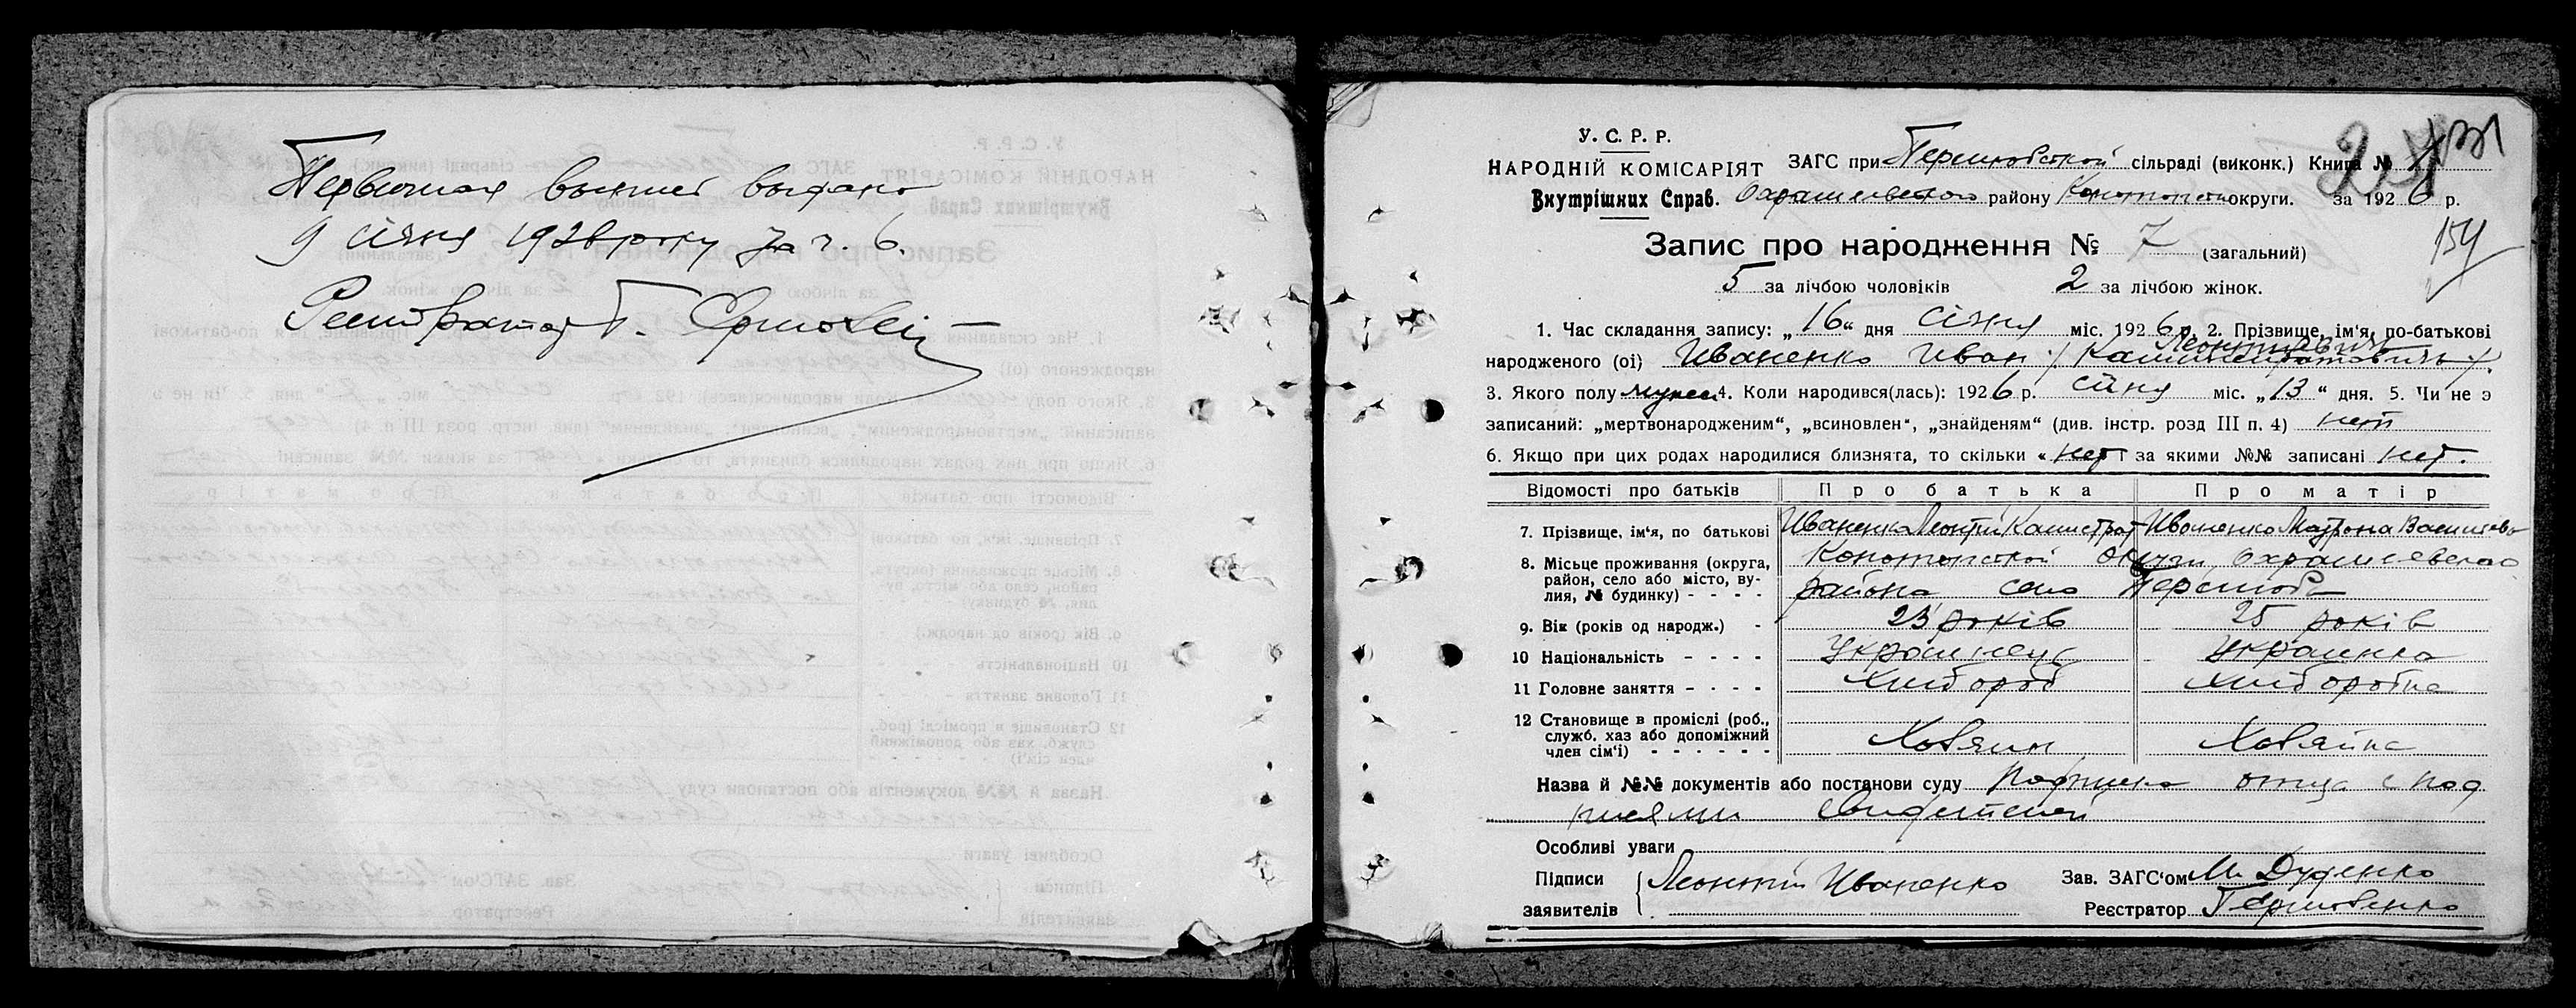 выпись выдано
9 січня 1928 року за ч. 6.
У. С. Р. Р.
НАРОДНІЙ КОМІСАРІЯТ
Внутрішних Справ.
ЗАГС при сільраді (виконк.) Книга №
району округи. за 1926 р.
154
Запис про народження № 7 (загальний)
5 за лічбою чоловіків 2 за лічбою жінок.
1. Час складання запису: „16“ дня січня міс. 1926 р. 2. Прізвище, ім'я, по-батькові
Леонтиевичь
народженого (ої) Иваненко Иван
3. Якого полу 4. Коли народився(лась): 1926 р. січня міс. „13“ дня. 5. Чи не э
записаний: „мертвонародженим“, „всиновлен“, „знайденям“ (див. інстр. розд III п. 4) нет
6. Якщо при цих родах народилися близнята, то скільки «нет за якими №№ записані нет.
Відомості про батьків Про батька Про матір
7. Прізвище, ім'я, по батькові Иваненко Леонтий Калистрат Иваненко Матрона
8. Місьце проживання (округа, Конотопской округи
район, село або місто, ву-
лия, № будинку) - - - - района село
9. Вік (років од народж.) - 23 років 25 років
10 Національність - - - - Украинець Украинка
11 Головне заняття - - - - хлібороб хліборобка
12 Становище в проміслі (роб.,
служб. хаз або допоміжний
член сім'ї) - - - - - - Хозяин Хозяйка
Назва й №№ документів або постанови суду Подписка отца с под
писями свидетелей
Особливі уваги
Підписи Леонтий Иваненко Зав. ЗАГС'ом М. Дуденко
заявителів Реєстратор